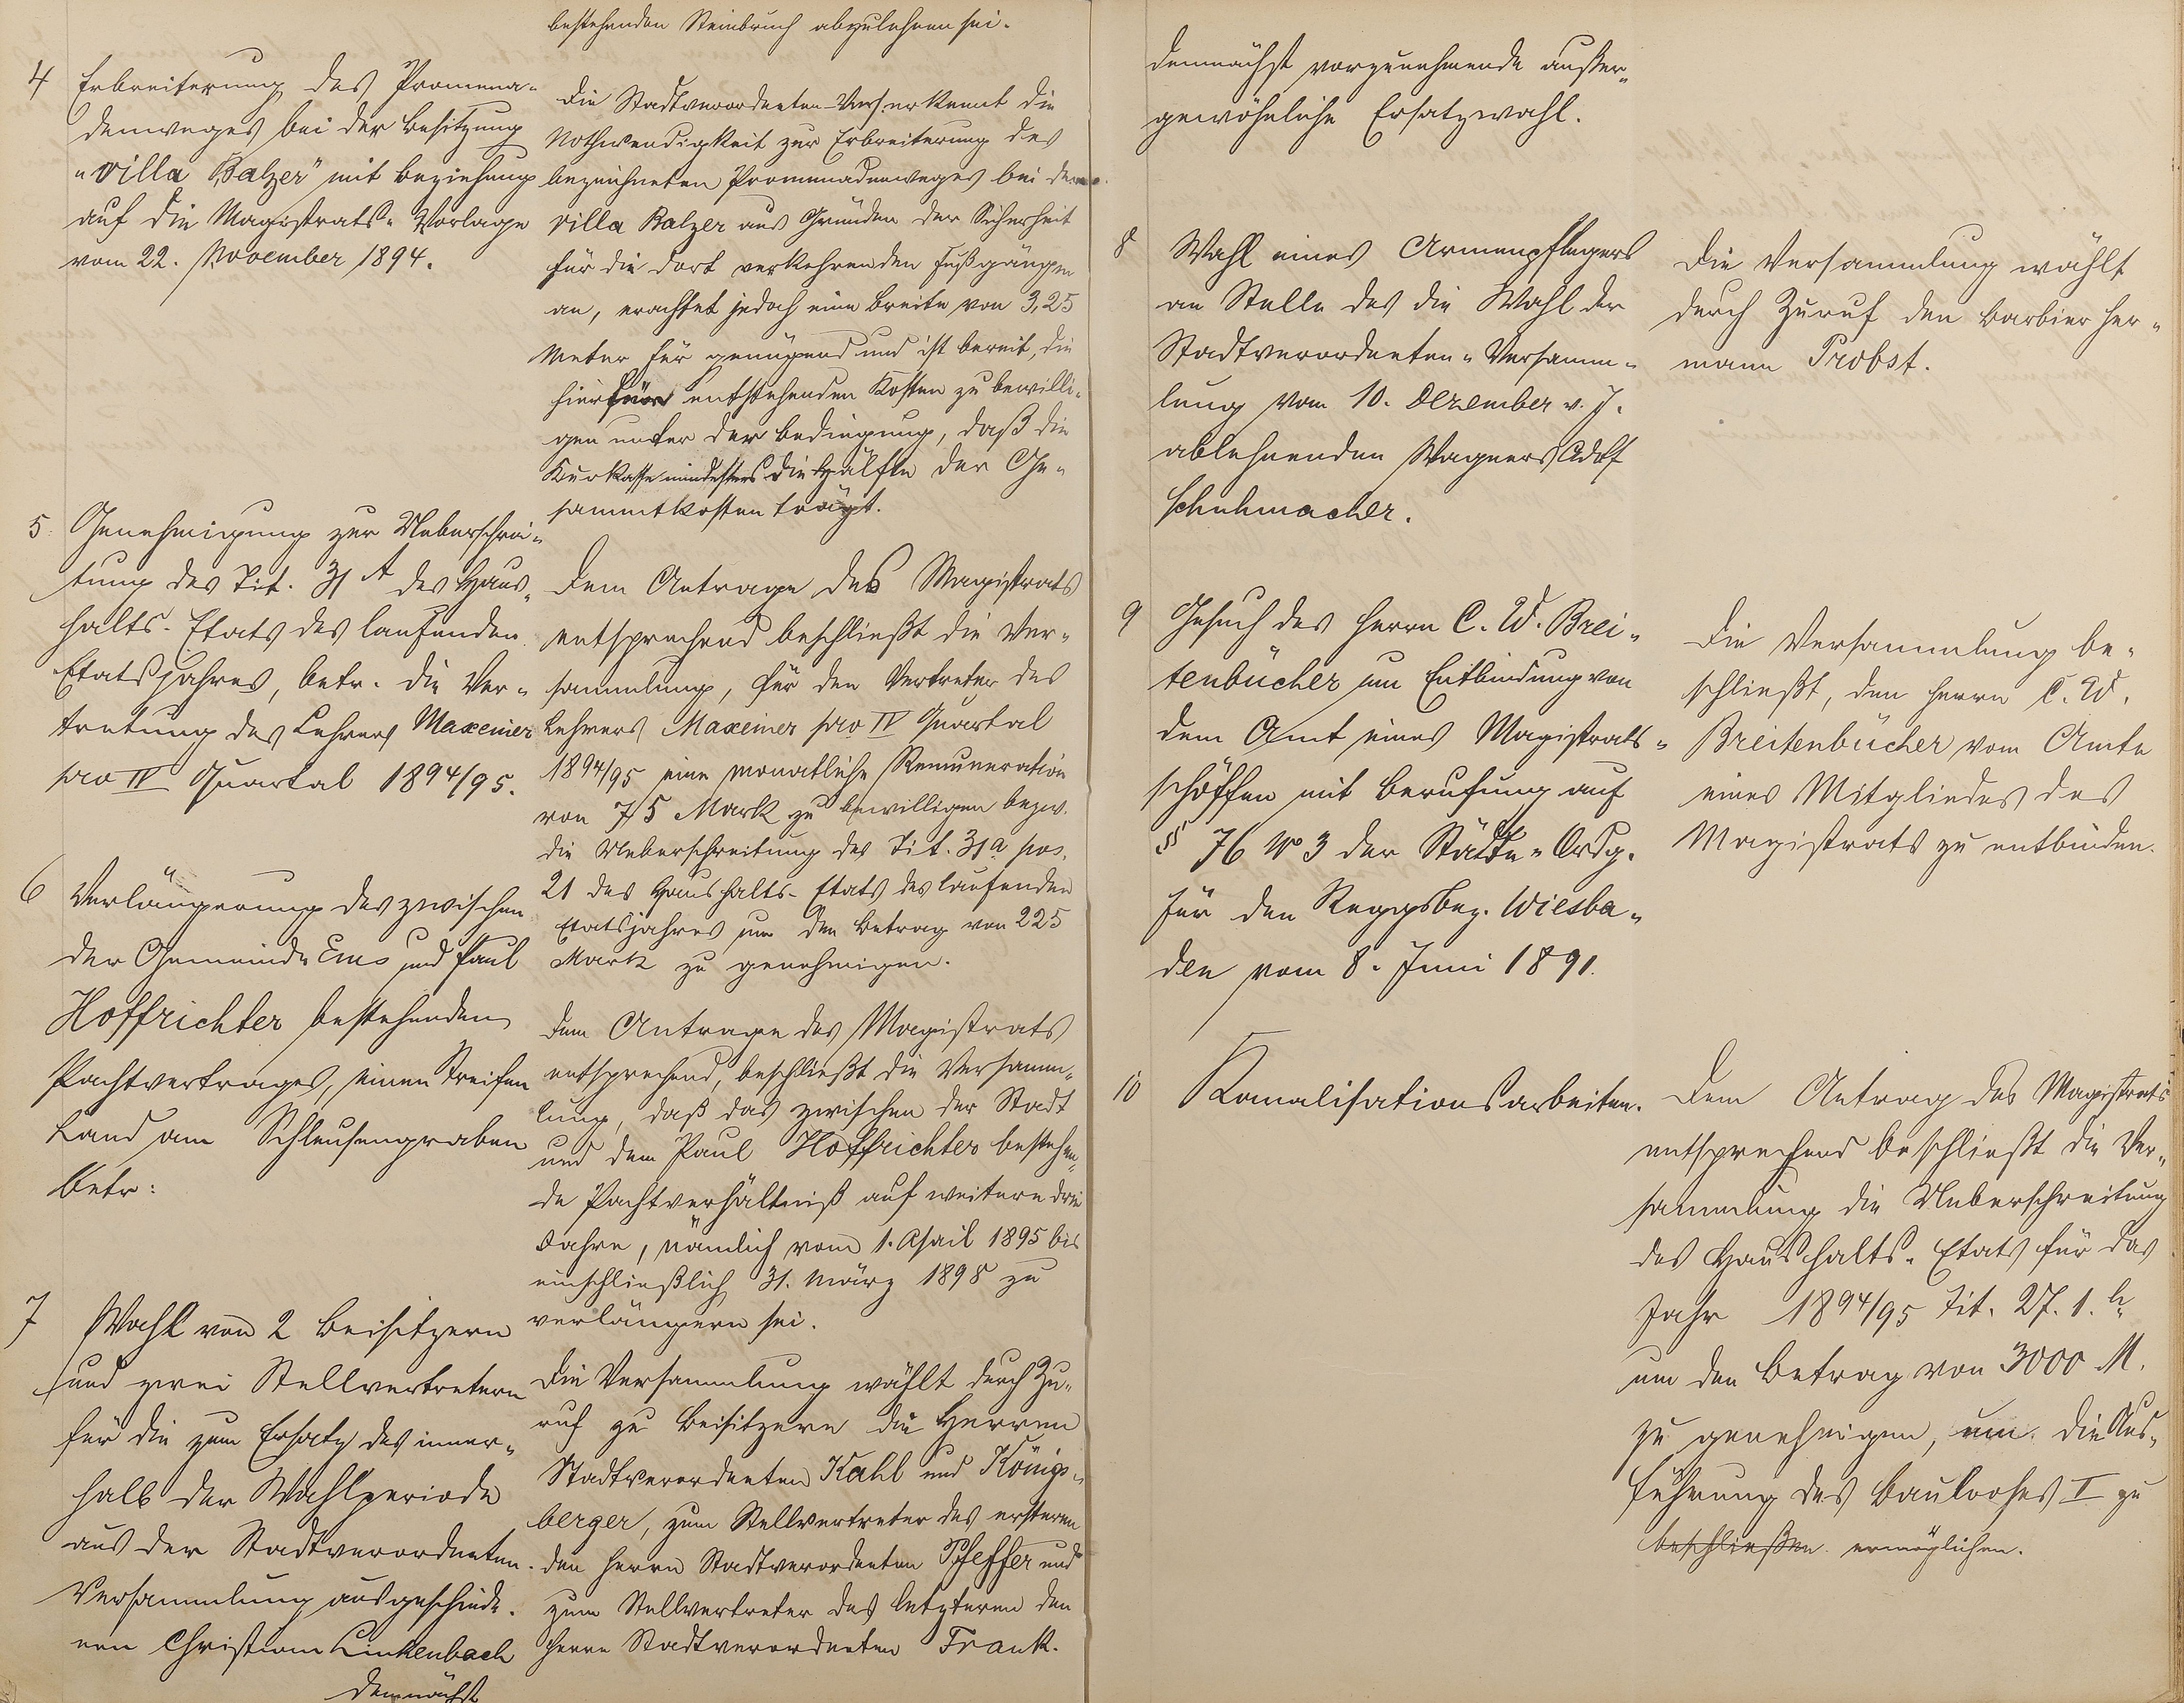 bestehenden Steinbruch abzulehnen sei.
4 Erbreiterung des Promena-
denweges bei der Besitzung
"Villa Balzer" mit Beziehung
auf die Magistrats-Vorlage
vom 22. November 1894.
Die Stadtverordneten-Vers. erkennt die
Nothwendigkeit zur Erbreiterung des
bezeichneten Promenadenweges bei der
Villa Balzer aus Gründen der Sicherheit
für die dort verkehrenden Fußgänger
an, erachtet jedoch eine Breite von 3,25
Meter für genügend und ist bereit, die
hierfür entstehenden Kosten zu bewilli-
gen unter der Bedingung, daß die
Kurkasse mindestens die Hälfte der Ge-
sammtkosten trägt.
5. Genehmigung zur Ueberschrei-
tung des Tit. 31 A des Haus-
halts-Etats des laufenden
Etatsjahres, betr. die Ver-
tretung des Lehrers Maxeiner
pro IV Quartal 1894/95.
Dem Antrage des Magistrats
entsprechend beschließt die Ver-
sammlung, für den Vertreter des
Lehrers Maxeiner pro IV Quartal
1894/95 eine monatliche Remuneration
von 75 Mark zu bewilligen bezw.
die Ueberschreitung des Tit. 31a pos.
21 des Haushalts-Etats des laufenden
Etatsjahres um den Betrag von 225
Mark zu genehmigen.
6 Verlängerung des zwischen
der Gemeinde Ems und Paul
Hoffrichter bestehenden
Pachtvertrages, einen Streifen
Land am Schleusengraben
betr:
Dem Antrage des Magistrats
entsprechend, beschließt die Versamm-
lung, daß das zwischen der Stadt
und dem Paul Hoffrichter bestehen-
de Pachtverhältniß auf weitere drei
Jahre, nämlich vom 1. April 1895 bis
einschließlich 31. März 1898 zu
verlängern sei.
7 Wahl von 2 Beisitzern
und zwei Stellvertretern
für die zum Ersatz des inner-
halb der Wahlperiode
aus der Stadtverordneten-
Versammlung ausgeschiede-
nen Christian Linkenbach
demnächst
Die Versammlung wählt durch Zu-
ruf zu Beisitzern die Herren
Stadtverordneten Kahl und Königs-
berger, zum Stellvertreter des ersteren
den Herrn Stadtverordneten Pfeffer und
zum Stellvertreter des letzteren den
Herrn Stadtverordneten Frank.
demnächst vorzunehmende außer-
gewöhnliche Ersatzwahl.
8 Wahl eines Armenpflegers
an Stelle des die Wahl der
Stadtverordneten-Versamm-
lung vom 10. Dezember v. J.
ablehnenden Wagners Adolf
Schuhmacher.
Die Versammlung wählt
durch Zuruf den Barbier Her-
mann Probst.
9 Gesuch des Herrn C. W. Brei-
tenbücher um Entbindung von
dem Amt eines Magistrats-
schöffen mit Berufung auf
§ 76 No 3 der Städte-Ordg.
für den Reggsbez. Wiesba-
den vom 8. Juni 1891.
Die Versammlung be-
schließt, den Herrn C. W.
Breitenbücher vom Amte
eines Mitgliedes des
Magistrats zu entbinden.
10 Kanalisationsarbeiten.
Dem Antrag des Magistrats
entsprechend beschließt die Ver-
sammlung die Ueberschreitung
des Haushalts-Etats für das
Jahr 1894/95 Tit. 27. 1. b
um den Betrag von 3000 M.
zu genehmigen, um die Aus-
führung des Bauloses I zu
beschließen. ermöglichen.